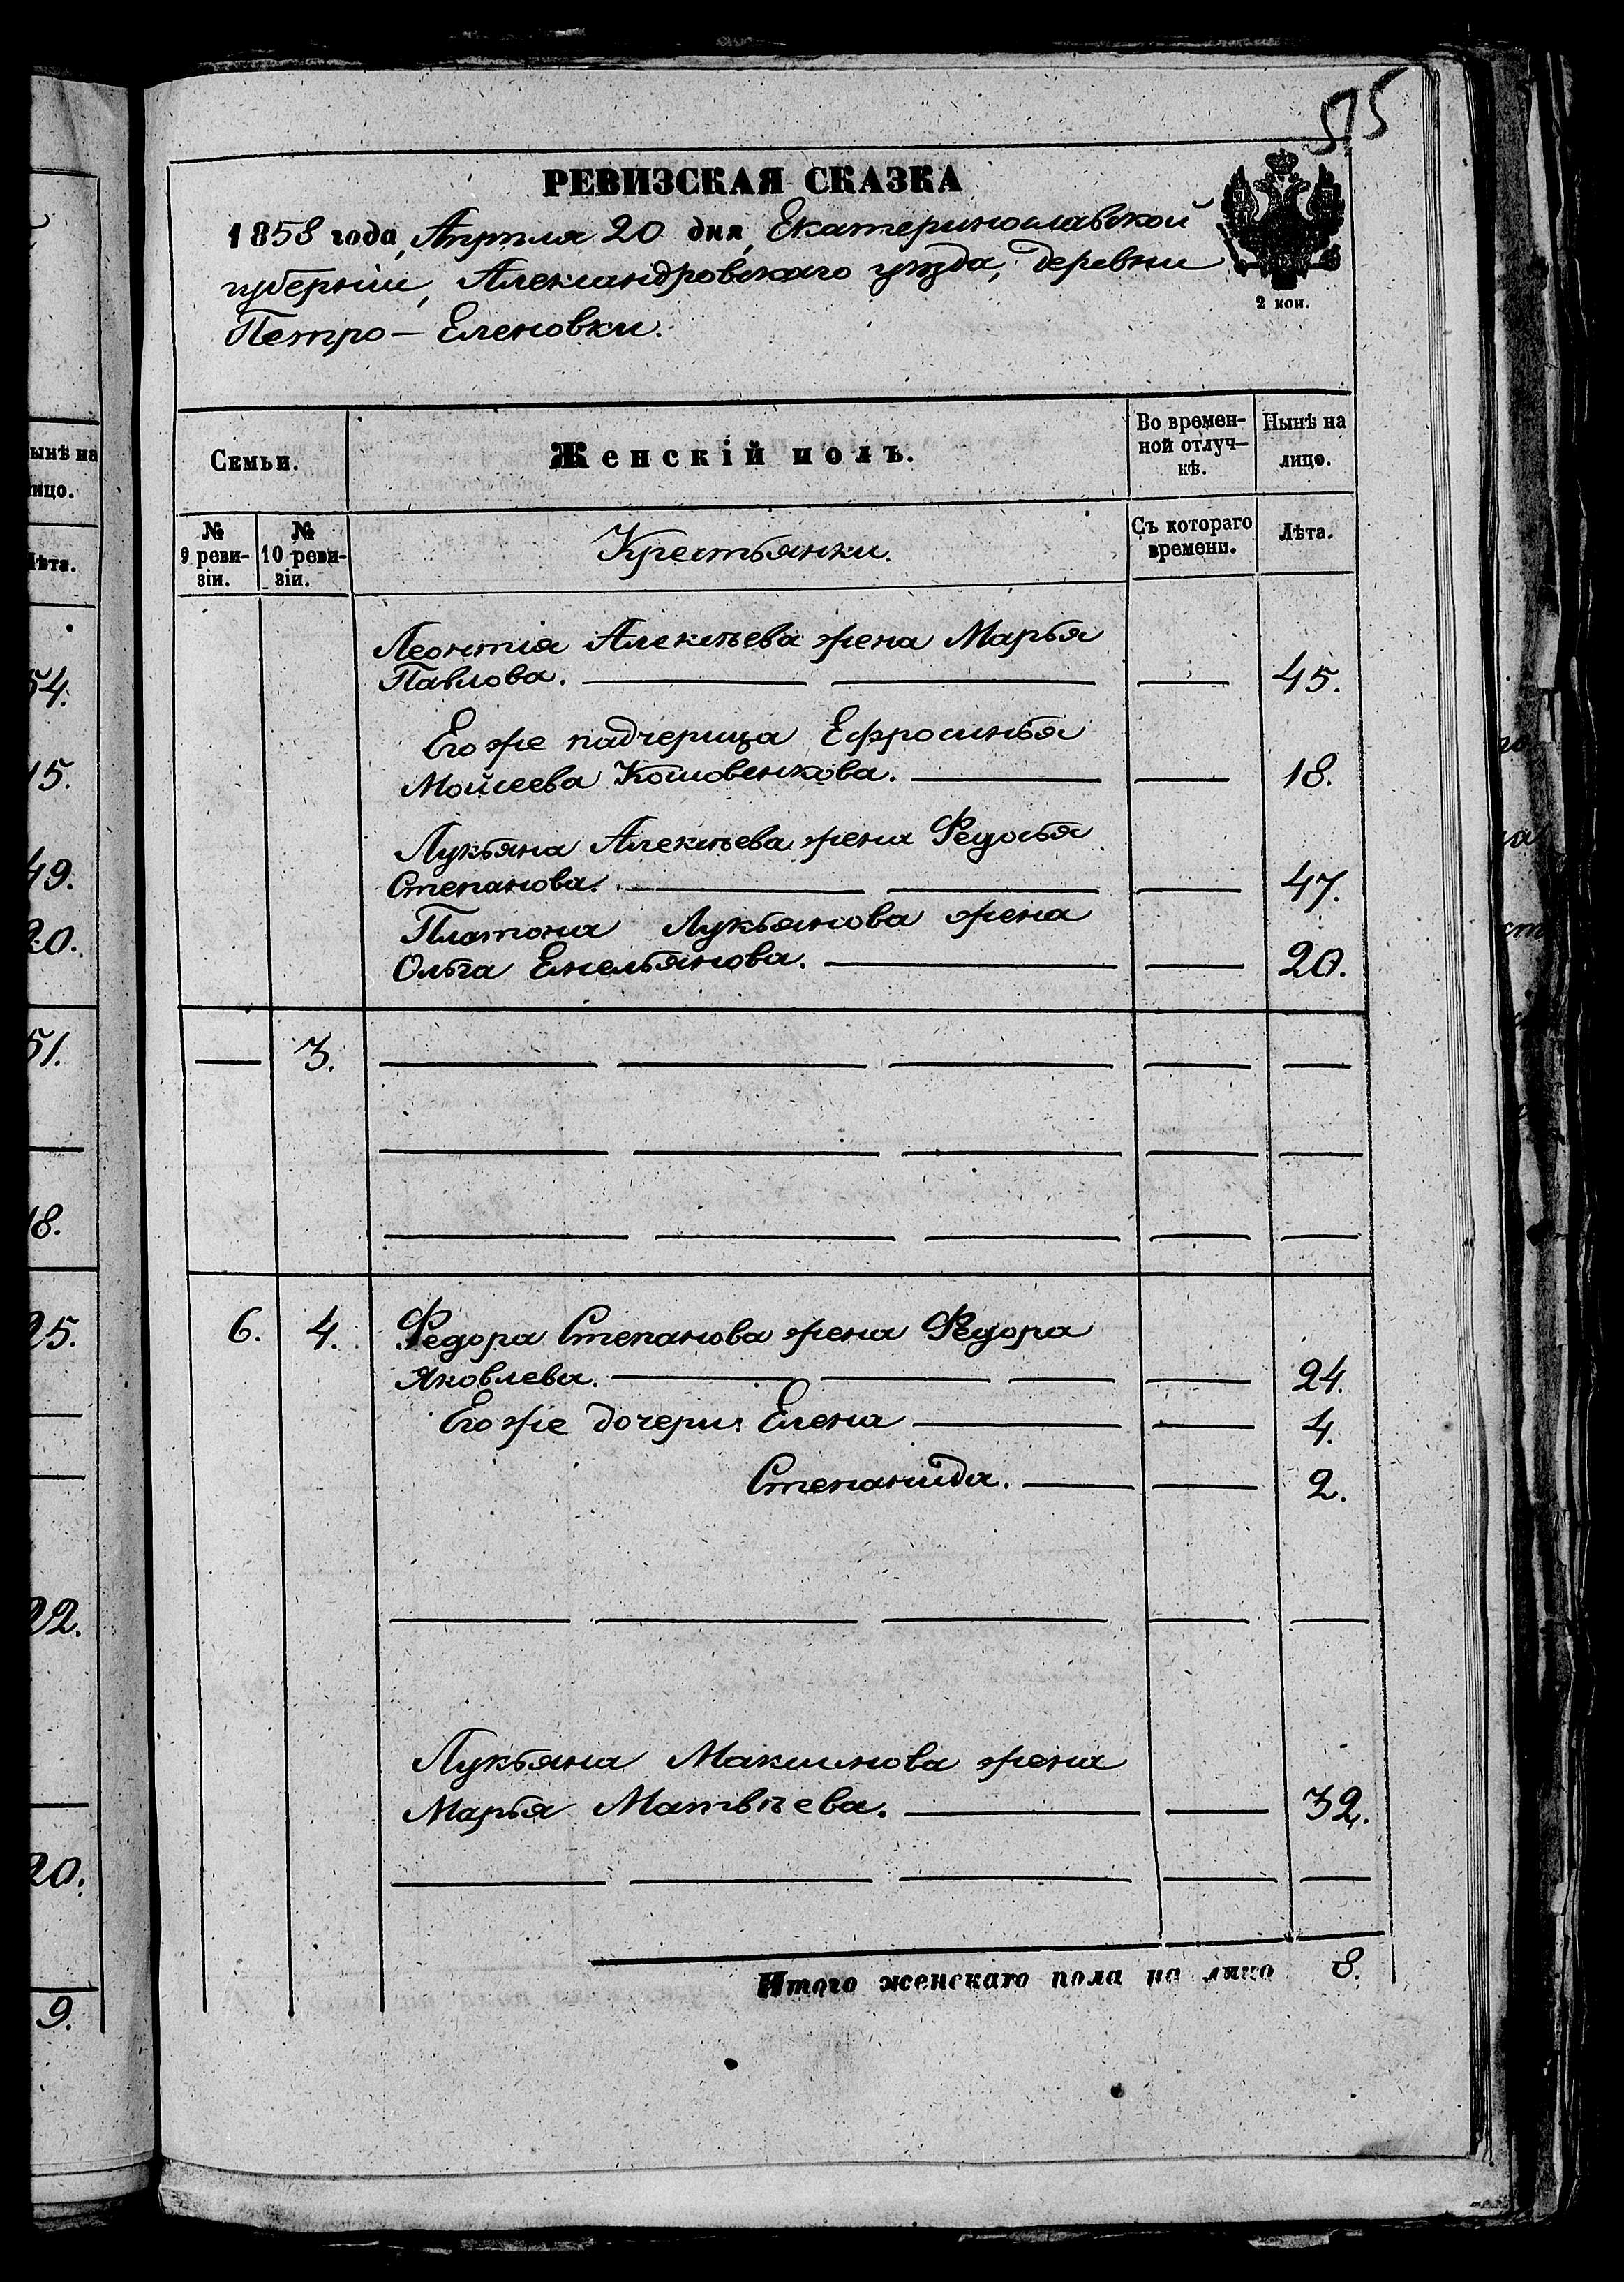 515
РЕВИЗСКАЯ СКАЗКА
1858 года, Апрѣля 20 дня, Екатеринославской
губерніи, Александровскаго уѣзда, деревни
Петро-Еленовки.
2 коп.
Семьи.
Женскій полъ.
Во времен-
ной отлуч-
кѣ.
Нынѣ на
лицо.
№
9 реви-
зіи.
№
10 реви-
зіи.
Крестьянки.
Съ котораго
времени.
Лѣта.
Леонтія Алексѣева жена Марья
Павлова. — — — 45.
Его же падчерица Ефросинья
Мойсеева — — 18.
Лукьяна Алексѣева жена Федосья
Степанова. — — — 47.
Платона Лукьянова жена
Ольга Емельянова. — — 20.
— 3. — — — — —
— — — — —
— — — — —
6. 4. Федора Степанова жена Федора
Яковлева. — — — — 24.
Его же дочери: Елена — — 4.
Степанида. — — 2.
— — — — —
Лукьяна Максимова жена
Марья Матвѣева. — — 32.
— — — — —
Итого женскаго пола на лицо 8.
ынѣ на
ицо.
ѣта.
54.
15.
49.
20.
51.
18.
25.
22.
20.
9.